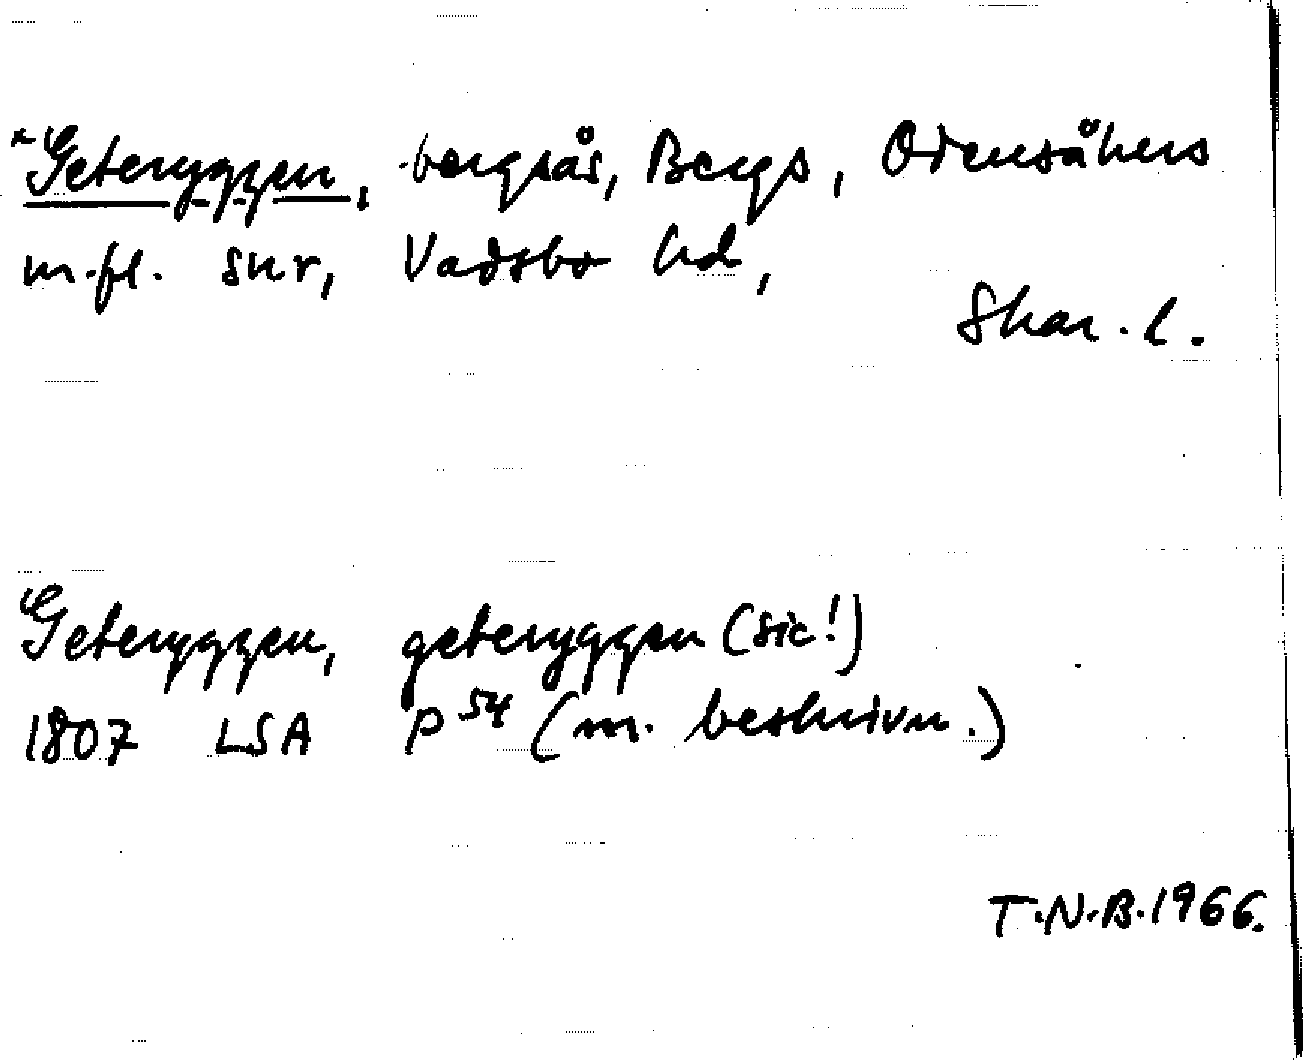 *Geteryggen, bergsås, Bergs, Odensåkers
m.fl. snr, Vadsbo hd,
Skar. l.
Geteryggen, geteryggen (sic!)
1807 LSA P 54 (m. beskrivn.)
T.N.B. 1966.